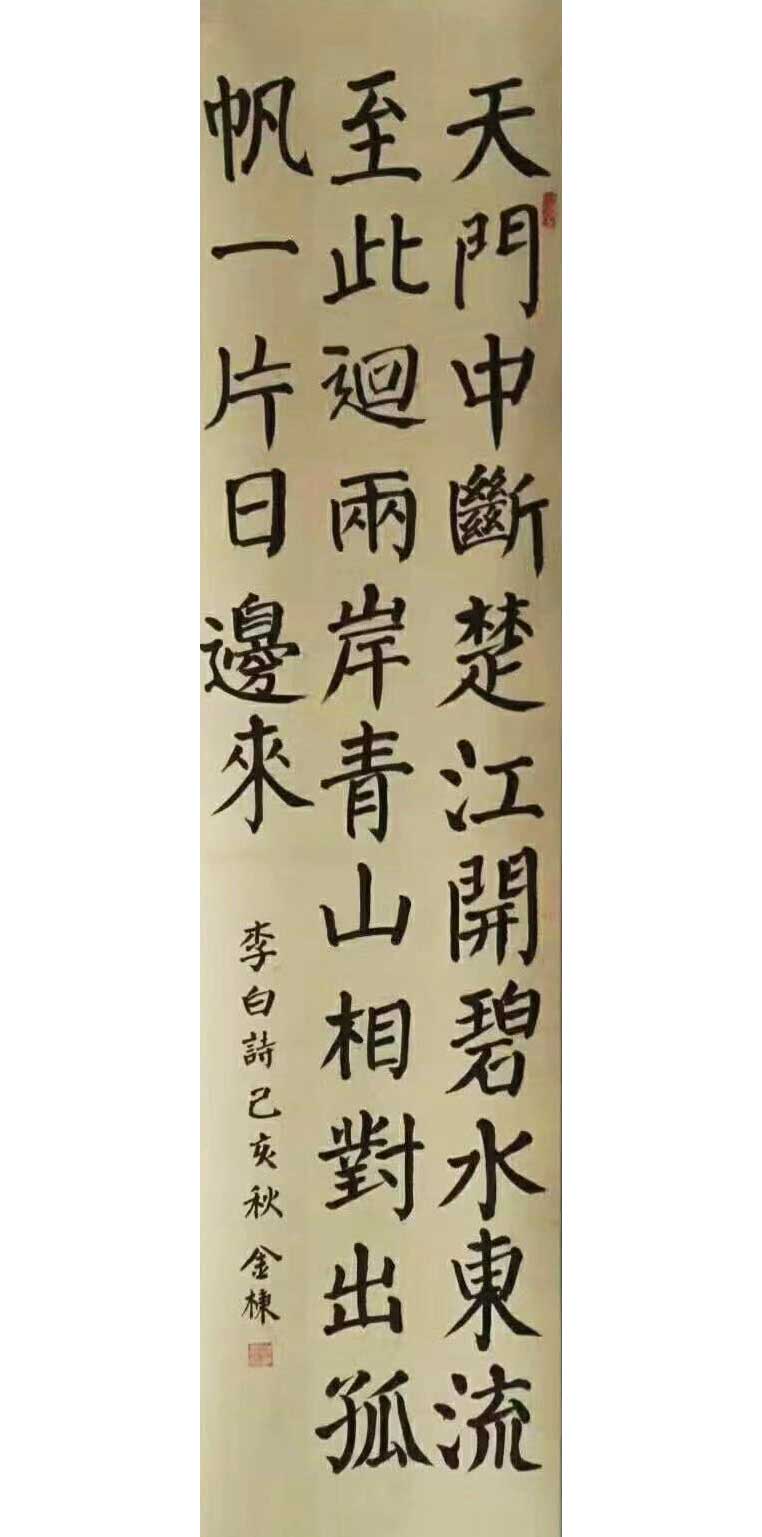 天門中斷楚江開碧水東流
至此迴兩岸青山相對出孤
帆一片日邊來
李白詩己亥秋金棟